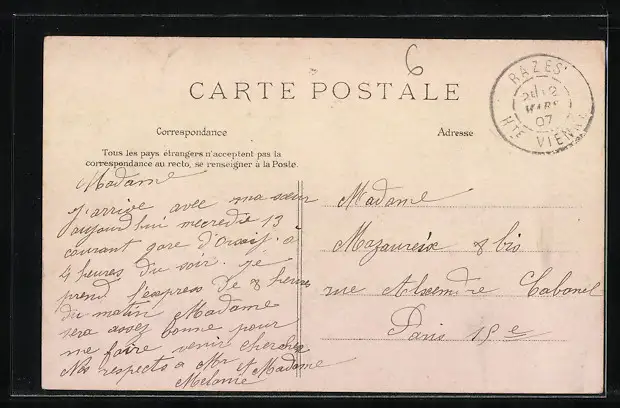 6
CARTE POSTALE
RAZES
12
MARS
07
HTE VIENNE
Correspondance
Adresse
Tous les pays étrangers n'acceptent pas la
correspondance au recto, se renseigner à la Poste.
Madame
J'arrive avec ma sœur
aujourd'hui mecredie 13
courant gare d'Orsaif. a
4 heures du soir. Je
prend l'express de 8 heures
du matin Madame
sera assez bonne pour
me faire venir chercher
Nos respects a Mr et Madame
Melanie
Madame
Mazaureix 8 bis
rue Alxendre Cabanel
Paris 15e